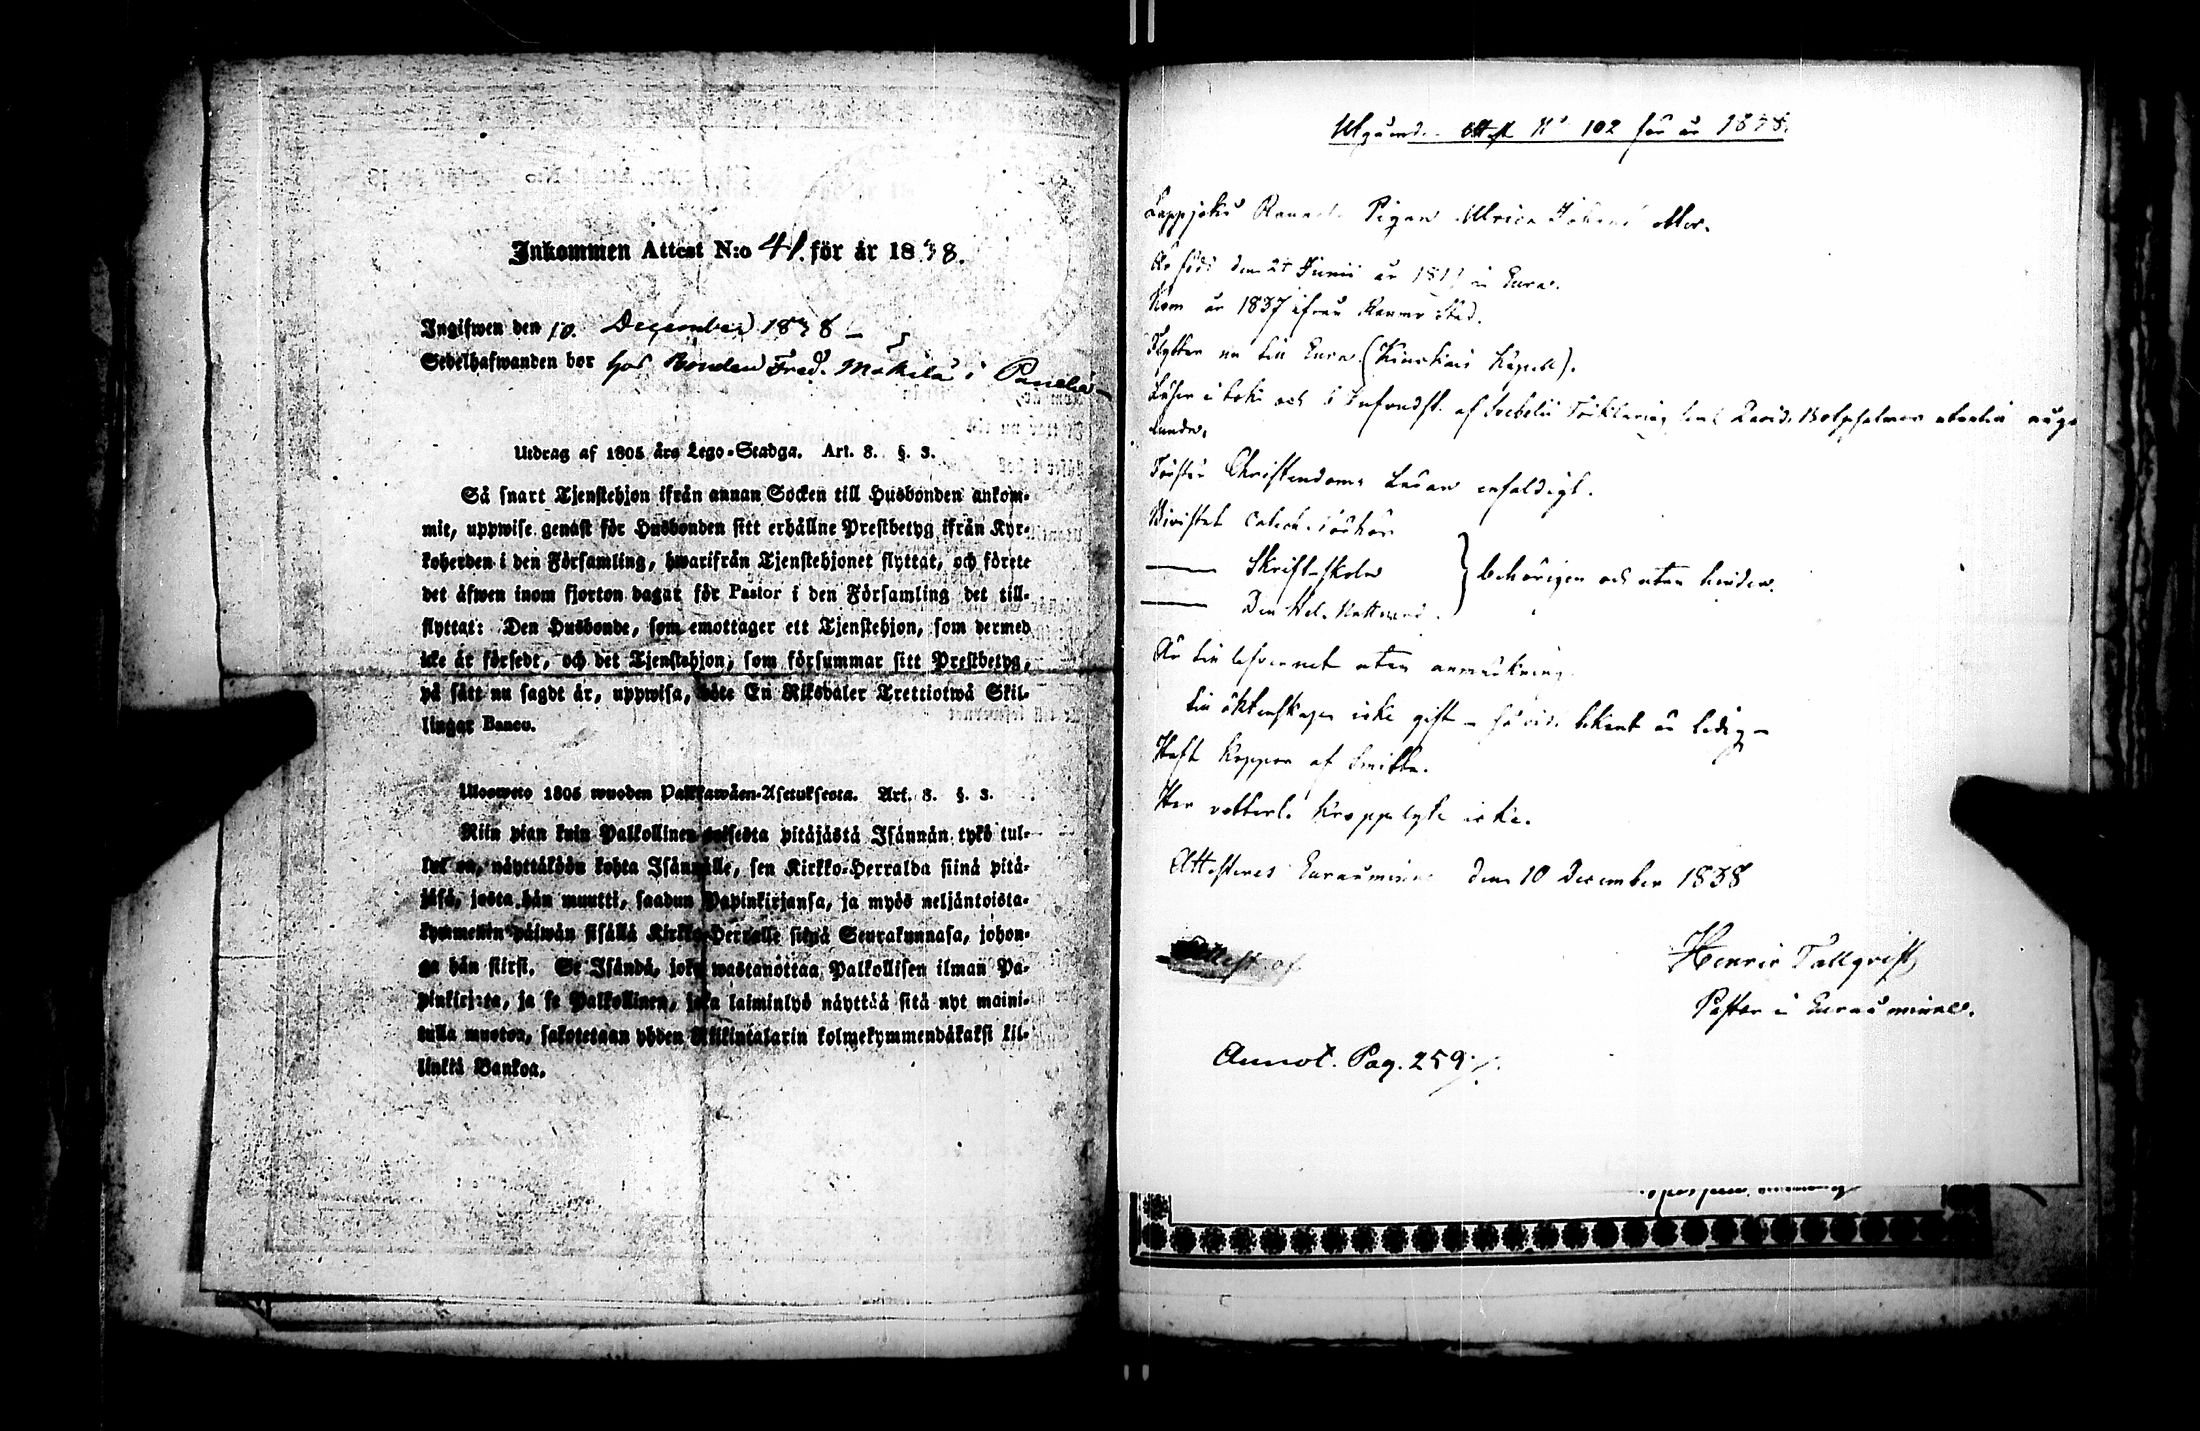 Inkommen Attest N:o 41. för år 1838.
Ingifwen den 10. December 1838 –
Sedelhafwanden bor hos Bonden Fred. Mäkilä i Panelia
Utdrag af 1805 års Lego-Stadga. Art. 8. §. 3.
Så snart Tjenstehjon ifrån annan Socken till Husbonden ankom-
mit, uppwise genast för Husbonden sitt erhållne Prestbetyg ifrån Kyr-
koherden i den Församling, hwarifrån Tjenstehjonet flyttat, och förete
det äfwen inom fjorton dagar för Pastor i den Församling det till-
flyttat: Den Husbonde, som emottager ett Tjenstehjon, som dermed
icke är försedt, och det Tjenstehjon, som försummar sitt Prestbetyg,
på sätt nu sagdt är, uppwisa, böte En Riksdaler Trettiotwå Skil-
lingar Banco.
Ulosweto 1805 wuoden Palkkawäen-Asetuksesta. Art. 8. §. 3.
Niin pian kuin Palkollinen toisesta pitäjästä Isännän tykö tul-
lut on, näyttäköön kohta Isännälle, sen Kirkko-Herralda siinä pitä-
jäsä, josta hän muutti, saadun Papinkirjansa, ja myös neljäntoista-
kymmenin päiwän sisällä Kirkko-Herralle siinä Seurakunnasa, johon-
ga hän siirsi. Se Isändä, joka wastanottaa Palkollisen ilman Pa-
pinkirjata, ja se Palkollinen, joka laiminlyö näyttää sitä nyt maini-
tulla muoton, sakotetaan yhden Riikintalarin kolmekymmendäkaksi kil-
linkiä Bankoa.
Utgående Attest N:o 102 för år 1838.
Lappjoki Pigan Ulrica
Är född den 27 Junii år i Eura.
Kom år 1837 ifrån Raumo Stad.
Flyttar nu till Eura (Kiukais Kapell).
Läser i bok och af Svebelii Förklaring David. Botpsalmer utantill
lunda.
Förstår Christendoms Läran enfaldigt.
Bivistat Catech. Förhör
——— Skriftskola } behörigen och utan hinder.
——— Den Hel. Nattvard.
Är till lefvernet utan anmärkning.
Till äktenskapet icke gift – så vidt bekant är ledig –
Haft Koppor af Smitta.
Har veterl. Kroppslyte icke.
Attesteres Euraåminne den 10 December 1838
Henric Tallqvist
Pastor i Euraåminne.
Attest af
Annot. Pag. 259